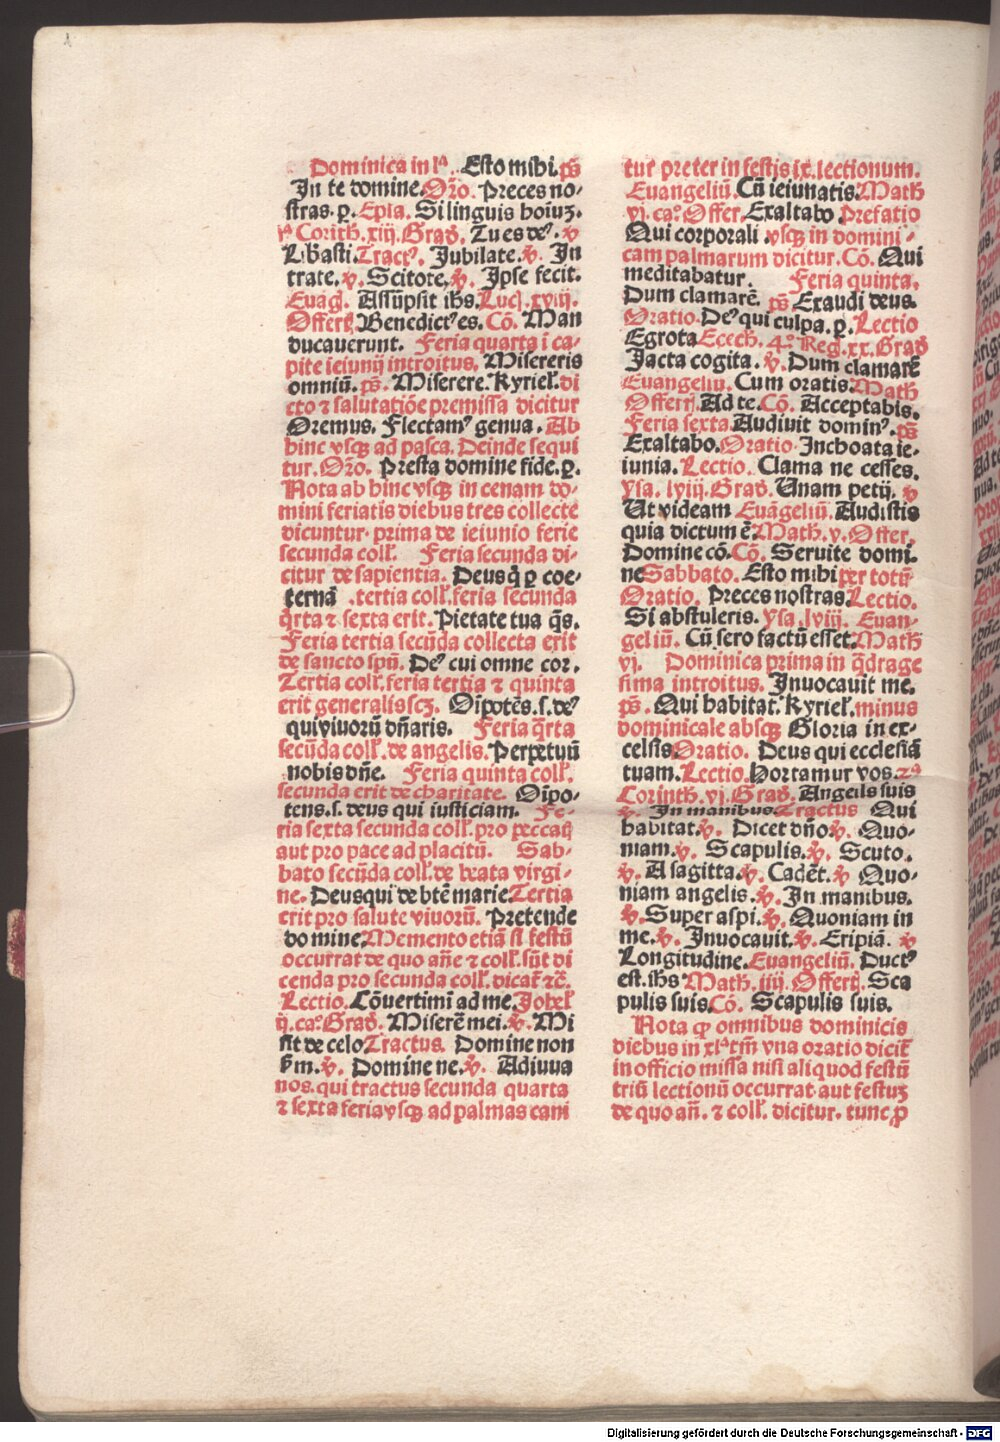 Dominica in lª. Esto mihi. ps̄
In te domine. Or̄o. Preces no⸗
stras. ꝑ. Epl̄a. Si linguis hoīuꝫ.
iª Corīth. xiij. Grad̄. Tu es de⁹. ꝟ
Libasti. Tract⁹. Jubilate. ꝟ. In
trate. ꝟ. Scitote. ꝟ. Ipse fecit.
Euāḡ. Assūpsit ihs̄. Luc̄. xviij.
Offert̄. Benedict⁹ es. Cō. Man
ducauerunt. Feria quarta ī ca⸗
pite ieiunij introitus. Misereris
omniū. ps̄. Miserere. Kyriel̄. di
cto ⁊ salutatiōe premissa dicitur
Oremus. Flectam⁹ genua. Ab
hinc vsqꝫ ad pasca. Deinde sequi
tur. Or̄o. Presta domine fide. ꝑ.
Nota ab hinc vsqꝫ in cenam do⸗
mini feriatis diebus tres collecte
dicuntur. prima de ieiunio ferie
secunda coll̄. Feria secunda di⸗
citur de sapientia. Deus q̄ ꝑ coe⸗
ternā .tertia coll̄. feria secunda
q̄rta ⁊ sexta erit. Pietate tua q̄s.
Feria tertia secūda collecta erit
de sancto spū. De⁹ cui omne cor.
Tertia coll̄. feria tertia ⁊ quinta
erit generalis scꝫ. Oīpotēs. s. de⁹
qui viuorū dn̄aris. Feria q̄rta
secūda coll̄. de angelis. Perpetuū
nobis dn̄e. Feria quinta coll̄.
secunda erit de charitate. Oīpo⸗
tens. s. deus qui iusticiam. Fe⸗
ria sexta secunda coll̄. pro peccat̄
aut pro pace ad placitū. Sab⸗
bato secūda coll̄. de beata virgi⸗
ne. Deus qui de btē marie Tertia
erit pro salute viuorū. Pretende
do mine. Memento etiā si festū
occurrat de quo an̄e ⁊ coll̄. sūt di
cenda pro secunda coll̄. dicat̄ ⁊c̄.
Lectio. Cōuertimī ad me. Johel̄
ij. ca⁰. Grad̄. Miserē mei. ꝟ. Mi
sit de celo Tractus. Domine non
ẜm. ꝟ. Domine ne. ꝟ. Adiuua
nos. qui tractus secunda quarta
⁊ sexta feria vsqꝫ ad palmas cani
tur preter in festis ix. lectionum.
Euangeliū. Cū ieiunatis. Math̄
vj. ca⁰. Offer. Exaltabo. Prefatio
Qui corporali .vsqꝫ in domini⸗
cam palmarum dicitur. Cō. Qui
meditabatur. Feria quinta.
Dum clamarē. ps̄ Exaudi deus.
Oratio. De⁹ qui culpa. ꝑ. Lectio
Egrota Ecech. 4⁰. Reḡ. xx. Grad̄
Jacta cogita. ꝟ. Dum clamarē
Euangeliū. Cum oratis. Math̄
Offert̄. Ad te. Cō. Acceptabis.
Feria sexta. Audiuit domin⁹. ps̄
Exaltabo. Oratio. Inchoata ie⸗
iunia. Lectio. Clama ne cesses.
ysa. lviij. Grad̄. Unam petij. ꝟ
Ut videam Euāgeliū. Audistis
quia dictum ē. Math̄. v. Offer.
Domine cō. Cō. Seruite domi.
ne Sabbato. Esto mihi per totū
Oratio. Preces nostras. Lectio.
Si abstuleris. ysa. lviij. Euan⸗
geliū. Cū sero factū esset. Math̄
vj. Dominica prima in q̄drage
sima introitus. Inuocauit me.
ps̄. Qui habitat. Kyriel̄. minus
dominicale absqꝫ Gloria in ex⸗
celsis Oratio. Deus qui ecclesiā
tuam. Lectio. Hortamur vos. 2ª
Corinth. vj. Grad̄. Angelis suis
ꝟ. In manibus. Tractus Qui
habitat. ꝟ. Dicet dn̄o. ꝟ. Quo⸗
niam. ꝟ. Scapulis. ꝟ. Scuto.
ꝟ. A sagitta. ꝟ. Cadēt. ꝟ Quo⸗
niam angelis. ꝟ. In manibus.
ꝟ. Super aspi. ꝟ. Quoniam in
me. ꝟ. Inuocauit. ꝟ. Eripiā. ꝟ
Longitudine. Euangeliū. Duct⁹
est. ihs̄ Math̄. iiij. Offert̄. Sca
pulis suis. Cō. Scapulis suis.
Nota qꝫ omnibus dominicis
diebus in xlª tm̄ vna oratio dicit̄
in officio missa nisi aliquod festū
triū lectionū occurrat aut festuꝫ
de quo an̄. ⁊ coll̄. dicitur. tunc ꝑ
Digitalisierung gefördert durch die Deutsche Forschungsgemeinschaft - DFG